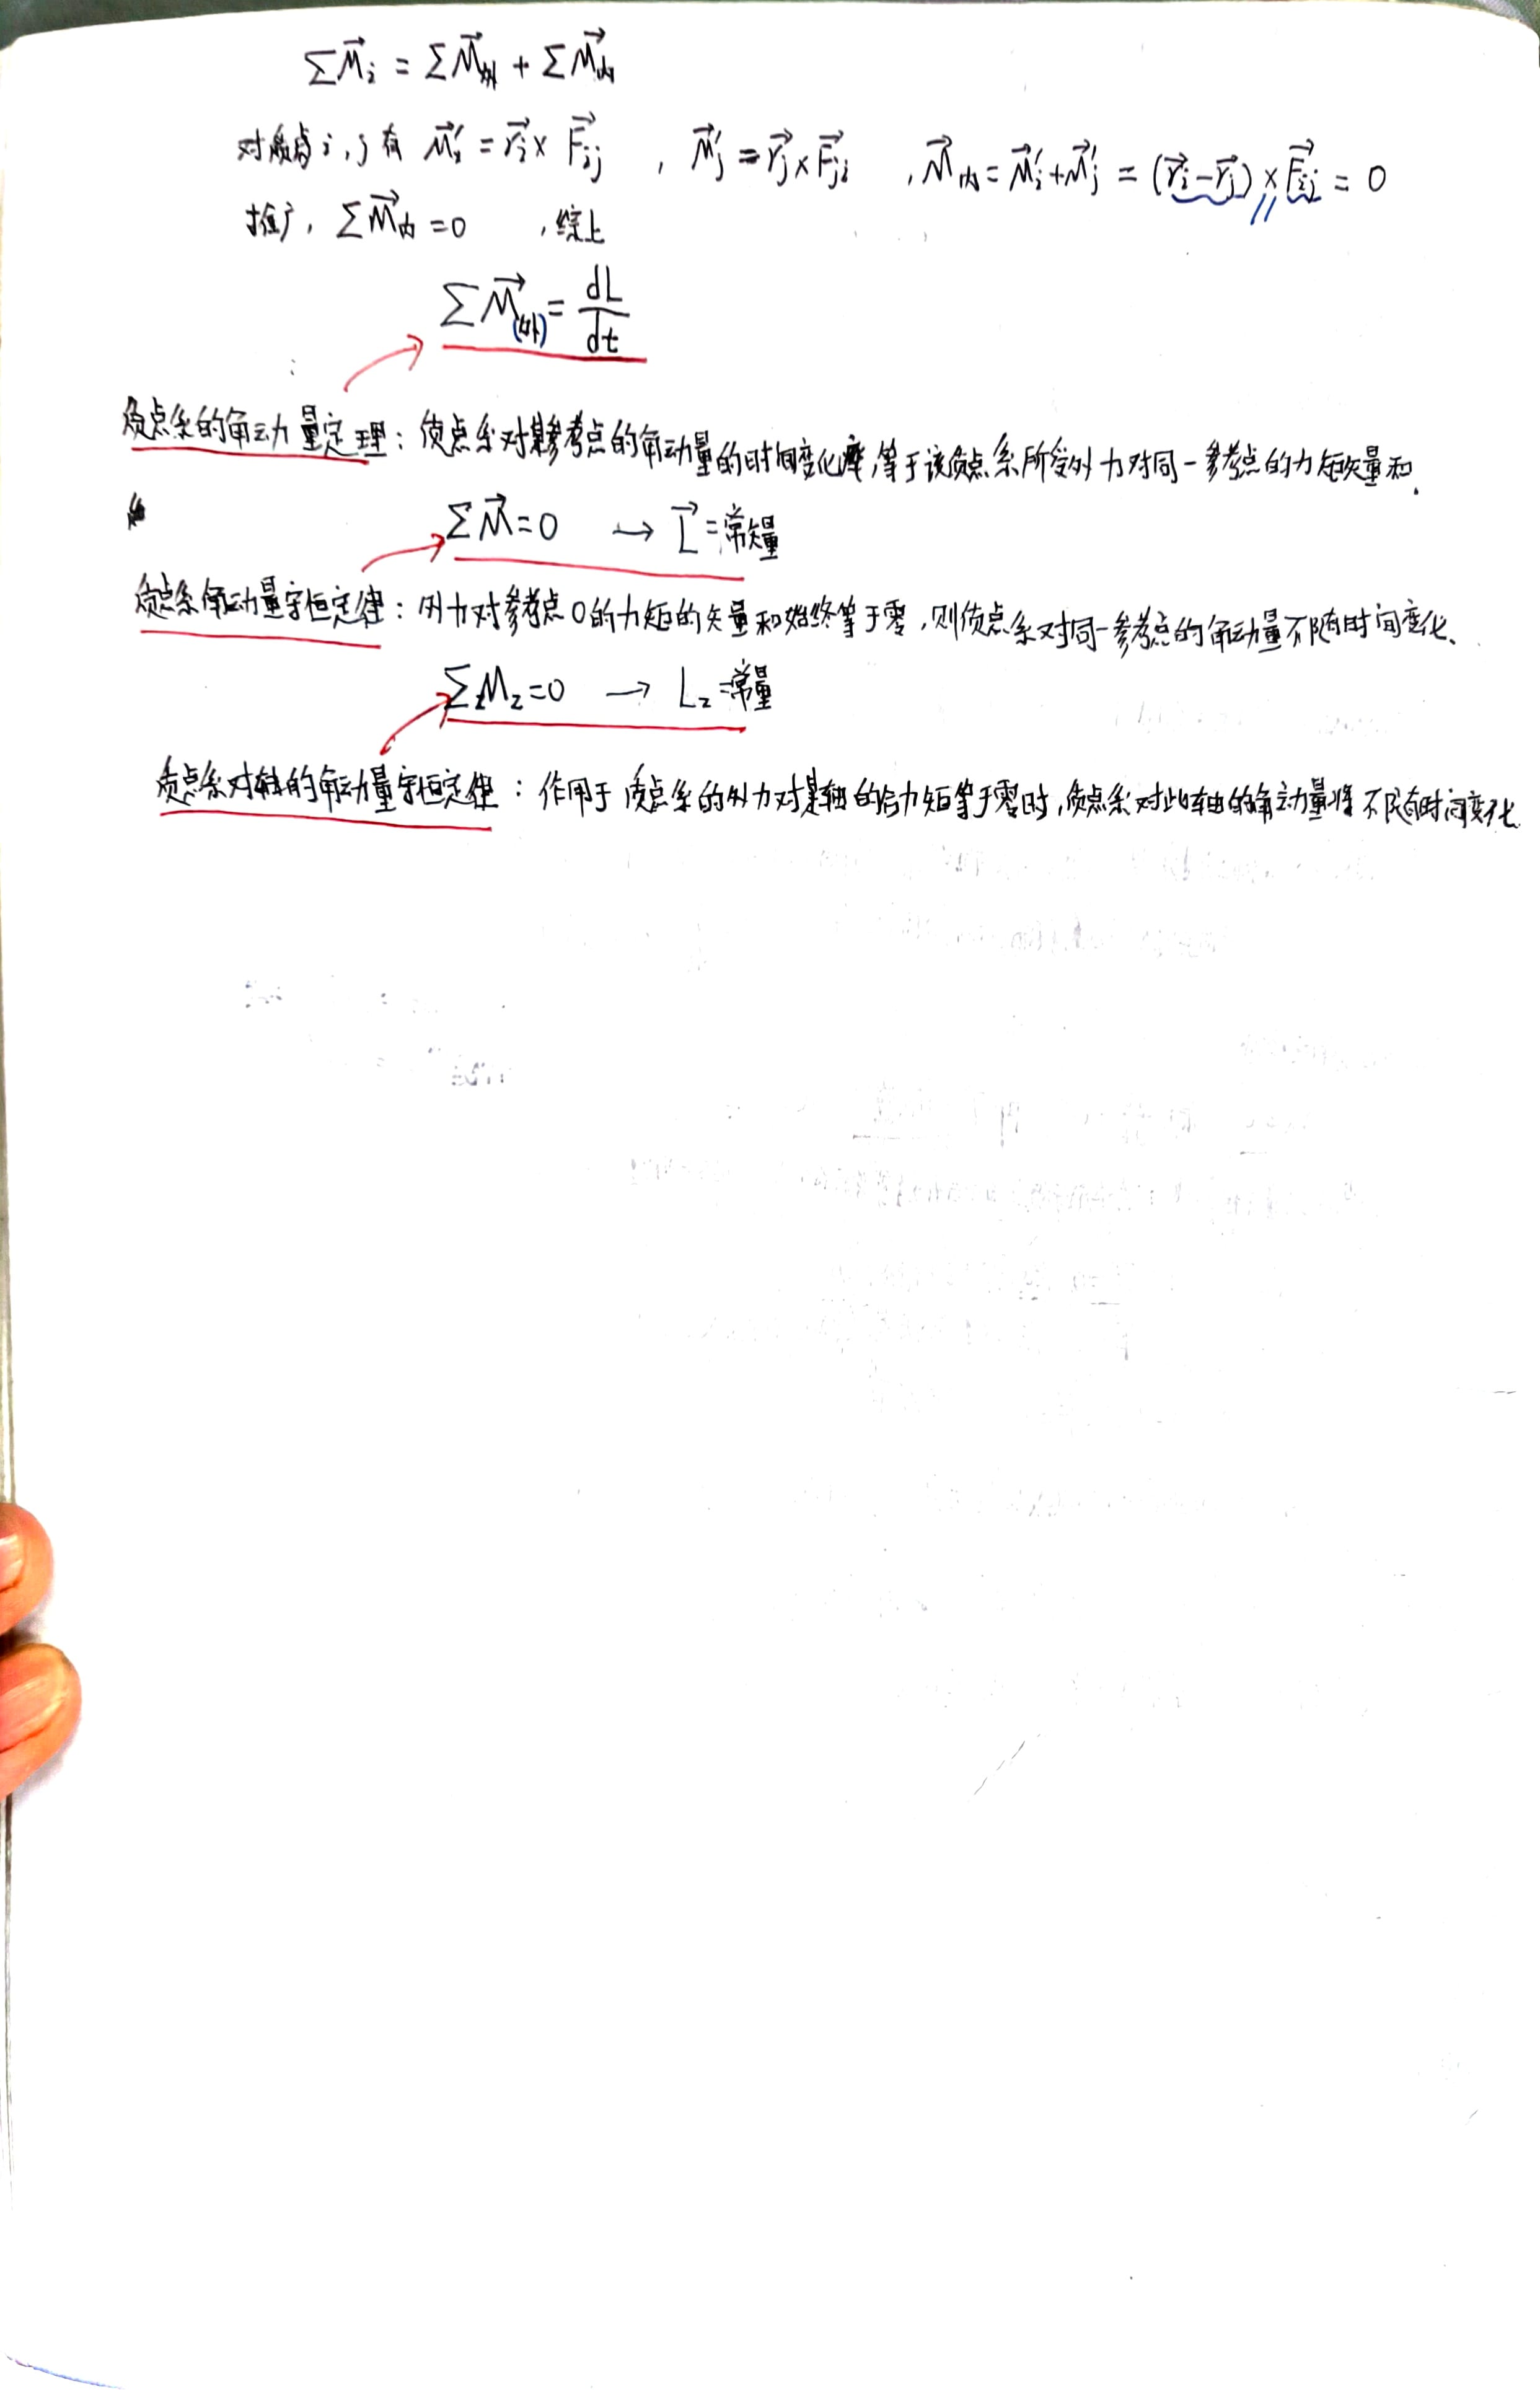 ∑M⃗ᵢ = ∑M⃗外 + ∑M⃗内
对质点i,j有 M⃗ᵢ' = r⃗ᵢ × F⃗ᵢⱼ , M⃗ⱼ' = r⃗ⱼ × F⃗ⱼᵢ , M⃗内 = M⃗ᵢ' + M⃗ⱼ' = (r⃗ᵢ - r⃗ⱼ) × F⃗ᵢⱼ = 0
//
推广, ∑M⃗内 = 0 , 综上
∑M⃗(外) = dL/dt
质点系的角动量定理: 质点系对某参考点的角动量的时间变化率,等于该质点系所受外力对同一参考点的力矩矢量和.
∑M⃗ = 0 → L⃗ = 常矢量
质点系角动量守恒定律: 外力对参考点O的力矩的矢量和始终等于零,则质点系对同一参考点的角动量不随时间变化.
∑M_z = 0 → L_z = 常量
质点系对轴的角动量守恒定律: 作用于质点系的外力对某轴的合力矩等于零时,质点系对此轴的角动量将不随时间变化